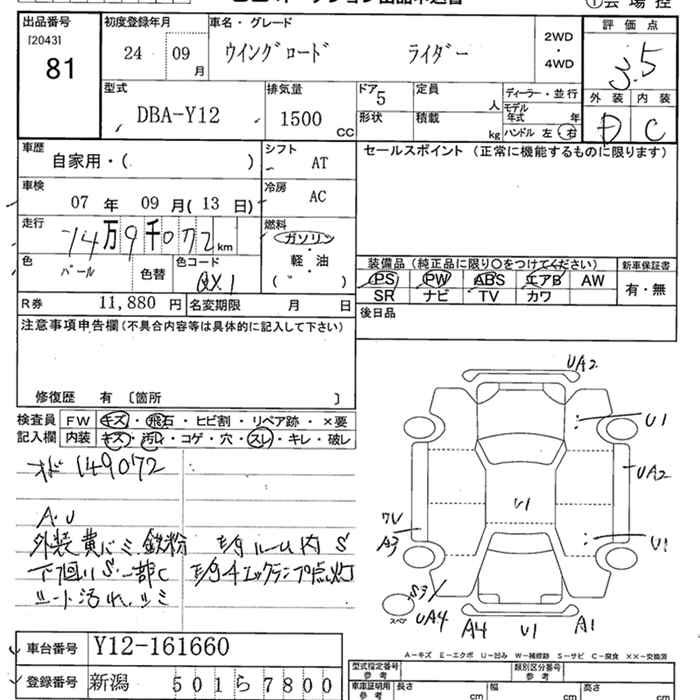 出品番号 初度登録年月 車名・グレード 2WD・4WD 評価点
[2043] 81 24 09月 ウイングロード ライダー 3.5
型式 排気量 ドア 定員 ディーラー・並行 外装 内装
DBA-Y12 1500CC 5 人 モデル年式 年 D C
形状 積載 kg ハンドル 左・右
車歴 シフト セールスポイント (正常に機能するものに限ります)
自家用・( ) AT
車検 冷房
07年 09月(13日) AC
走行 燃料
14万9千072km ガソリン・軽油
色 色替 色コード ( )
パール QX1
装備品 (純正品に限り○をつけてください) 新車保証書
PS PW ABS エアB AW 有・無
SR ナビ TV カワ
R券 11,880円 名変期限 月 日
後日品
注意事項申告欄(不具合内容等は具体的に記入して下さい)
修復歴 有 〔箇所 〕
検査員 FW キズ・飛石・ヒビ割・リペア跡・×要
記入欄 内装 キズ・汚れ・コゲ・穴・スレ・キレ・破レ
149072
A.U
外装黄バミ 鉄粉 ルーム内S
下回りS一部C
シート汚れ シミ
UA2
U1
UA2
U1
U1
A3
S3
UA4 A4 U1 A1
スペア
A-キズ E-エクボ U-凹み W-補修跡 S-サビ C-腐食 ××-交換済
車台番号 Y12-161660
登録番号 新潟 501ら7800
型式指定番号 参考 類別区分番号 参考
車庫証明用 参考 長さ cm 幅 cm 高さ cm